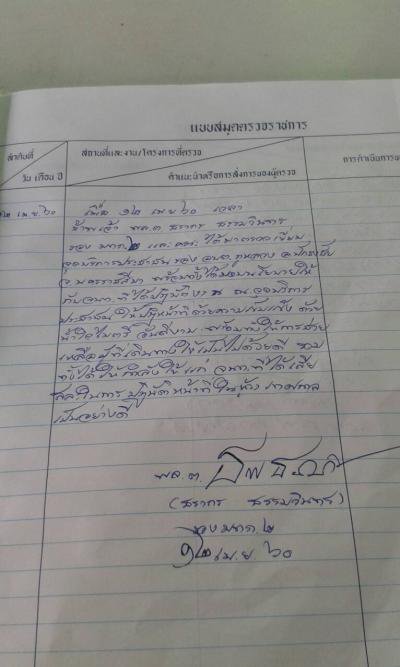 แบบสมุดตรวจราชการ
ลำดับที่
วัน เดือน ปี
สถานที่และงาน/โครงการที่ตรวจ
คำแนะนำหรือการสั่งการของผู้ตรวจ
การดำเนินการ
๑๒ เม.ย. ๖๐
เมื่อ ๑๒ เม.ย ๖๐ เวลา
ข้าพเจ้า พล.ต. ธรากร ธรรมวินทร
รอง มทภ.๒ และ คณะ ได้มาตรวจเยี่ยม
จุดบริการประชาชน ของ
จ.นครราชสีมา พร้อมทั้งได้มอบนโยบายให้
กับ จนท. ที่ได้ปฏิบัติงาน ณ จุดบริการ
ประชาชน ให้ปฏิบัติหน้าที่ด้วยความเข้มแข็ง ด้วย
น้ำใจไมตรี พร้อมทั้งให้การช่วย
เหลือผู้ที่เดินทางให้เป็นไปด้วยดี รวม
ทั้งได้ให้กำลังใจแก่ จนท. ที่ได้เสีย
สละในการปฏิบัติหน้าที่ในห้วงเทศกาล
เป็นอย่างดี
พล.ต.
(ธรากร ธรรมวินทร)
รอง มทภ.๒
๑๒ เม.ย. ๖๐